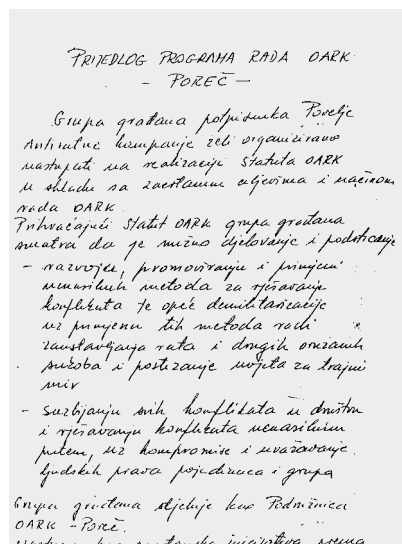 PRIJEDLOG PROGRAMA RADA OARK
- POREČ -
Grupa građana potpisnika Povelje
Antiratne kampanje želi organizirano
nastupati na realizaciji Statuta OARK
u skladu sa zacrtanim ciljevima i načinom
rada OARK.
Prihvaćajući Statut OARK grupa građana
smatra da je nužno djelovanje i podsticanje
- razvoju, promoviranju i primjeni
nenasilnih metoda za rješavanje
konflikta te opće demilitarizacije
uz primjenu tih metoda radi
zaustavljanja rata i drugih oružanih
sukoba i postizanje uvjeta za trajni
mir
- Suzbijanju svih konflikata u društvu
i rješavanju konflikata nenasilnim
putem, uz kompromise i uvažavanje
ljudskih prava pojedinaca i grupa
Grupa građana djeluje kao Podružnica
OARK - Poreč.